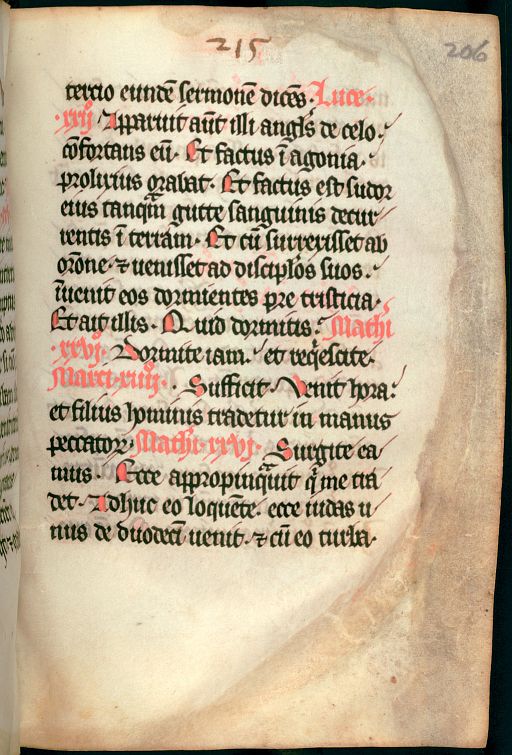 215
206
tercio eundē sermonē dicēs. Luce.
.xxij. Apparuit aūt illi angl̄s de celo.
cōfortans eū. Et factus ī agonia.
prolixius orabat. Et factus est sudor
eius tanqm̄ gutte sanguinis decur
rentis ī terram. Et cū surrexisset ab
orōne. ⁊ uenisset ad discipl̄os suos.
īuenit eos dormientes pre tristicia.
Et ait illis. Quid dormitis. Mathi
.xxvj. Dormite iam. et reqͥescite.
Marci. xiiij. . Sufficit. Venit hora.
et filius hominis tradetur in manus
peccatoꝝ. Mathi. xxvj. Surgite ea
mus. Ecce appropinquͣit qͥ me tra
det. Adhuc eo loquēte. ecce iudas u
nus de duodecī uenit. ⁊ cū eo turba.